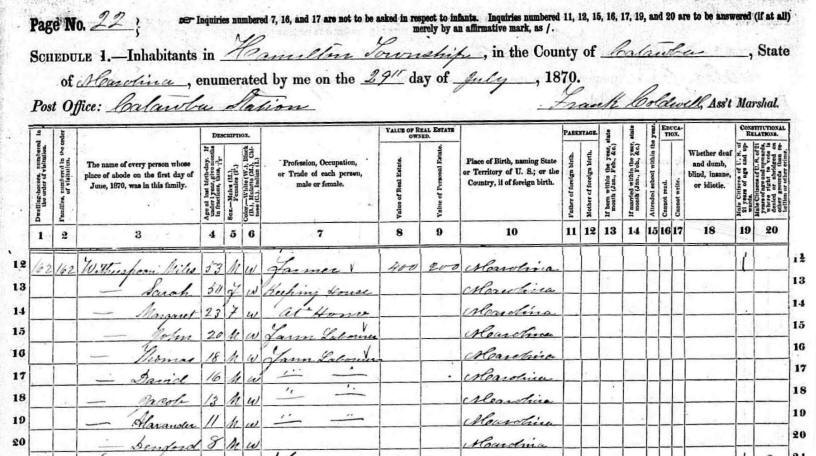 Page No. 22
☞ Inquiries numbered 7, 16, and 17 are not to be asked in respect to infants. Inquiries numbered 11, 12, 15, 16, 17, 19, and 20 are to be answered (if at all)
merely by an affirmative mark, as /.
SCHEDULE 1.—Inhabitants in Hamilton Township, in the County of Catawba, State
of N Carolina, enumerated by me on the 29th day of July, 1870.
Post Office: Catawba Station
Frank Coldwell, Ass't Marshal.
Dwelling-houses, numbered in the order of visitation.
Families, numbered in the order of visitation.
The name of every person whose place of abode on the first day of June, 1870, was in this family.
DESCRIPTION.
Age at last birth-day. If under 1 year, give months in fractions, thus,
Sex.—Males (M.), Females (F.)
Color.—White (W.), Black (B.), Mulatto (M.), Chinese (C.), Indian (I.)
Profession, Occupation, or Trade of each person, male or female.
VALUE OF REAL ESTATE OWNED.
Value of Real Estate.
Value of Personal Estate.
Place of Birth, naming State or Territory of U. S.; or the Country, if of foreign birth.
PARENTAGE.
Father of foreign birth.
Mother of foreign birth.
If born within the year, state month (Jan., Feb., &c.)
If married within the year, state month (Jan., Feb., &c.)
Attended school within the year.
EDUCATION.
Cannot read.
Cannot write.
Whether deaf and dumb, blind, insane, or idiotic.
CONSTITUTIONAL RELATIONS.
Male Citizens of U. S. of 21 years of age and upwards.
1 2 3 4 5 6 7 8 9 10 11 12 13 14 15 16 17 18 19 20
12 162 162 Witherspoon Miles 53 M W Farmer 400 200 N Carolina / 12
13 — Sarah 50 F W Keeping House N Carolina 13
14 — Margaret 23 F W At Home N Carolina 14
15 — John 20 M W Farm Laborer N Carolina 15
16 — Thomas 18 M W Farm Laborer N Carolina 16
17 — David 16 M W " " N Carolina 17
18 — Jacob 13 M W " " N Carolina 18
19 — Alexander 11 M W " " N Carolina 19
20 — 8 M W N Carolina 20